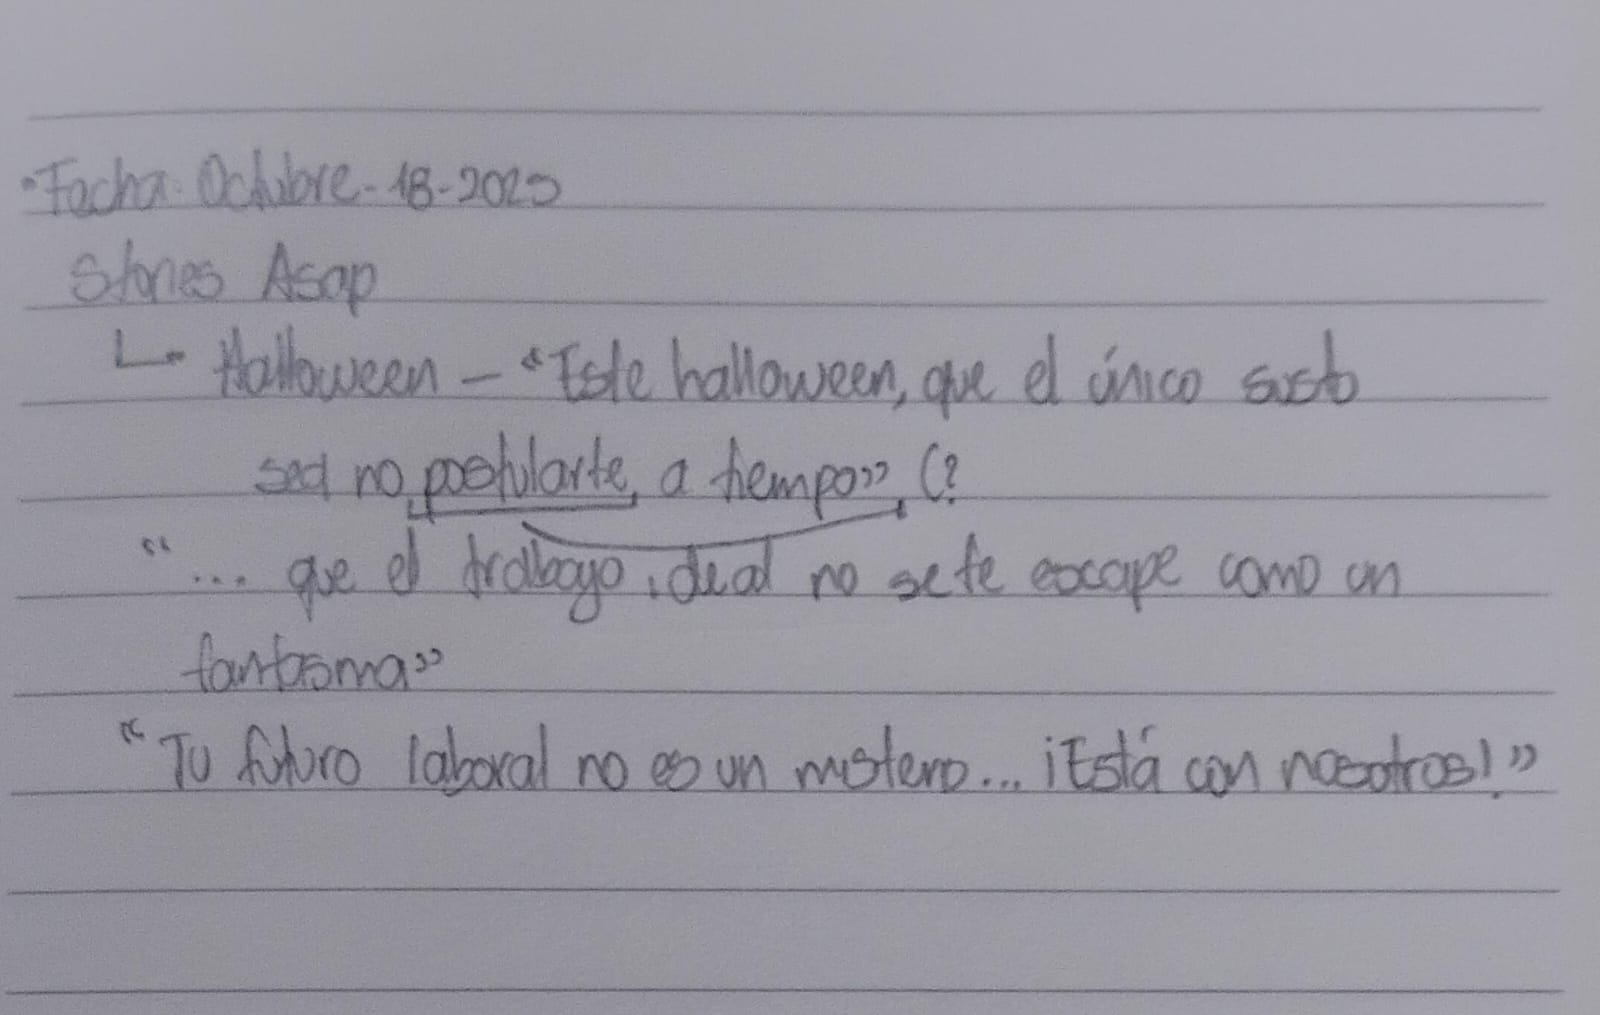 •Fecha: Octubre-18-2025
Stories Asap
↳ Halloween – "Este halloween, que el único susto
sea no postularte, a tiempo", (?
"... que el trabajo ideal no se te escape como un
fantasma"
"Tu futuro laboral no es un misterio... ¡Está con nosotros!"